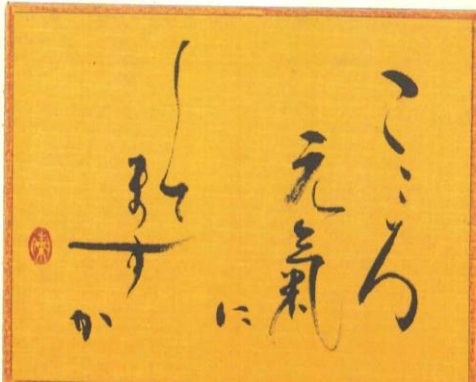 こころ
元氣
に
して
ますか